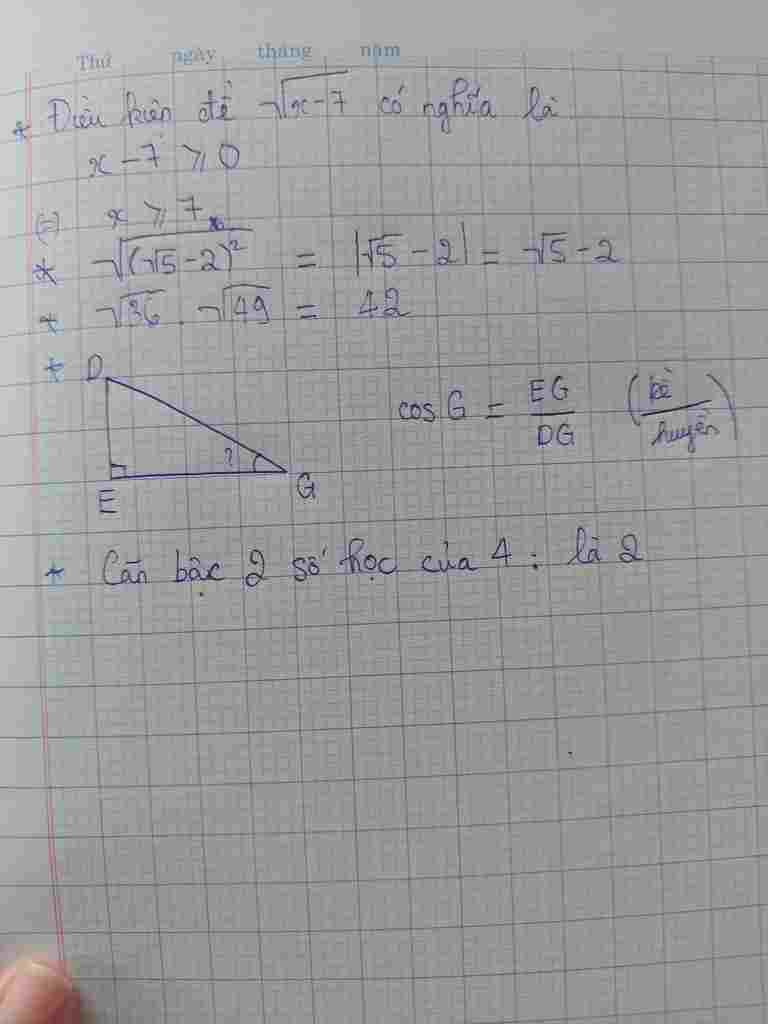 Thứ ngày tháng năm
* Điều kiện để √(x-7) có nghĩa là
x - 7 ⩾ 0
(=) x ⩾ 7
* √((√5 - 2)²) = |√5 - 2| = √5 - 2
* √36 . √49 = 42
*
D
E
?
G
cos G = EG/DG (kề/huyền)
* Căn bậc 2 số học của 4 : là 2